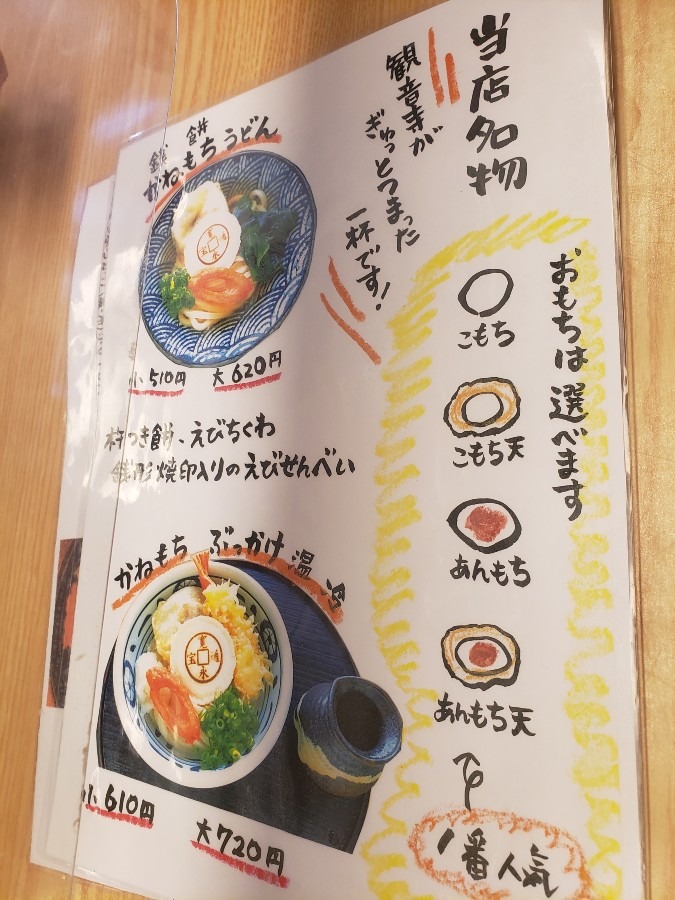 当店名物
観音寺が
ぎゅっとつまった
一杯です!
銭 餅
がねもちうどん
寛
永
通
宝
小 510円 大 620円
杵つき餅、えびちくわ
銭形焼印入りのえびせんべい
かねもち ぶっかけ 温 冷
寛
永
通
宝
小 610円
大 720円
おもちは選べます
こもち
こもち天
あんもち
あんもち天
1番人気